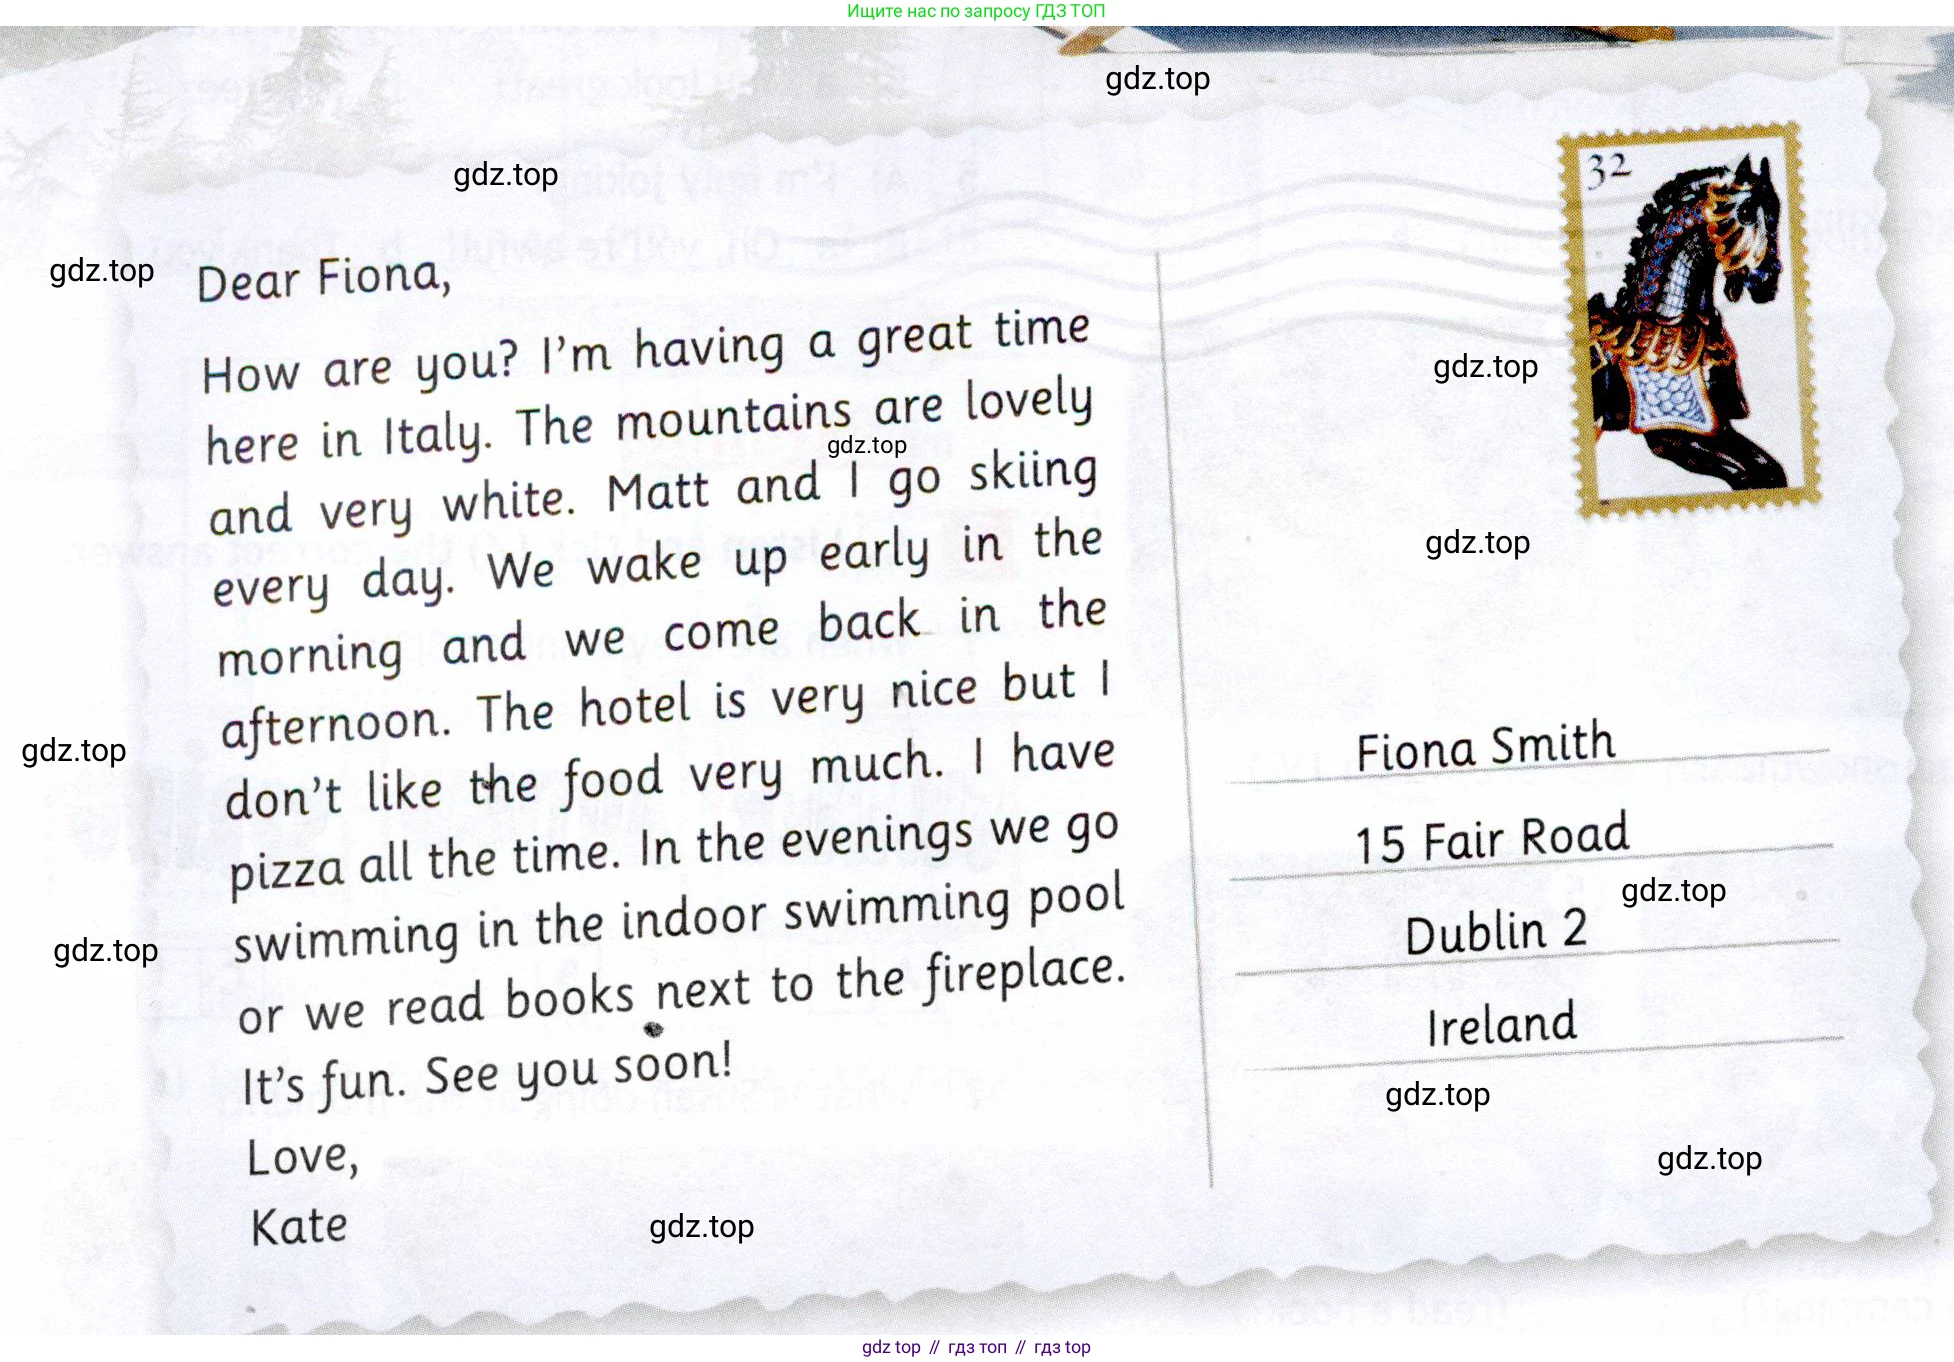 Ищите нас по запросу ГДЗ ТОП
gdz.top
gdz.top
gdz.top
32
Dear Fiona,
How are you? I'm having a great time
here in Italy. The mountains are lovely
gdz.top
and very white. Matt and I go skiing
every day. We wake up early in the
morning and we come back in the
afternoon. The hotel is very nice but I
don't like the food very much. I have
pizza all the time. In the evenings we go
swimming in the indoor swimming pool
or we read books next to the fireplace.
It's fun. See you soon!
Love,
Kate
gdz.top
gdz.top
gdz.top
gdz.top
gdz.top
Fiona Smith
15 Fair Road
gdz.top
Dublin 2
Ireland
gdz.top
gdz.top
gdz top // гдз топ // гдз top